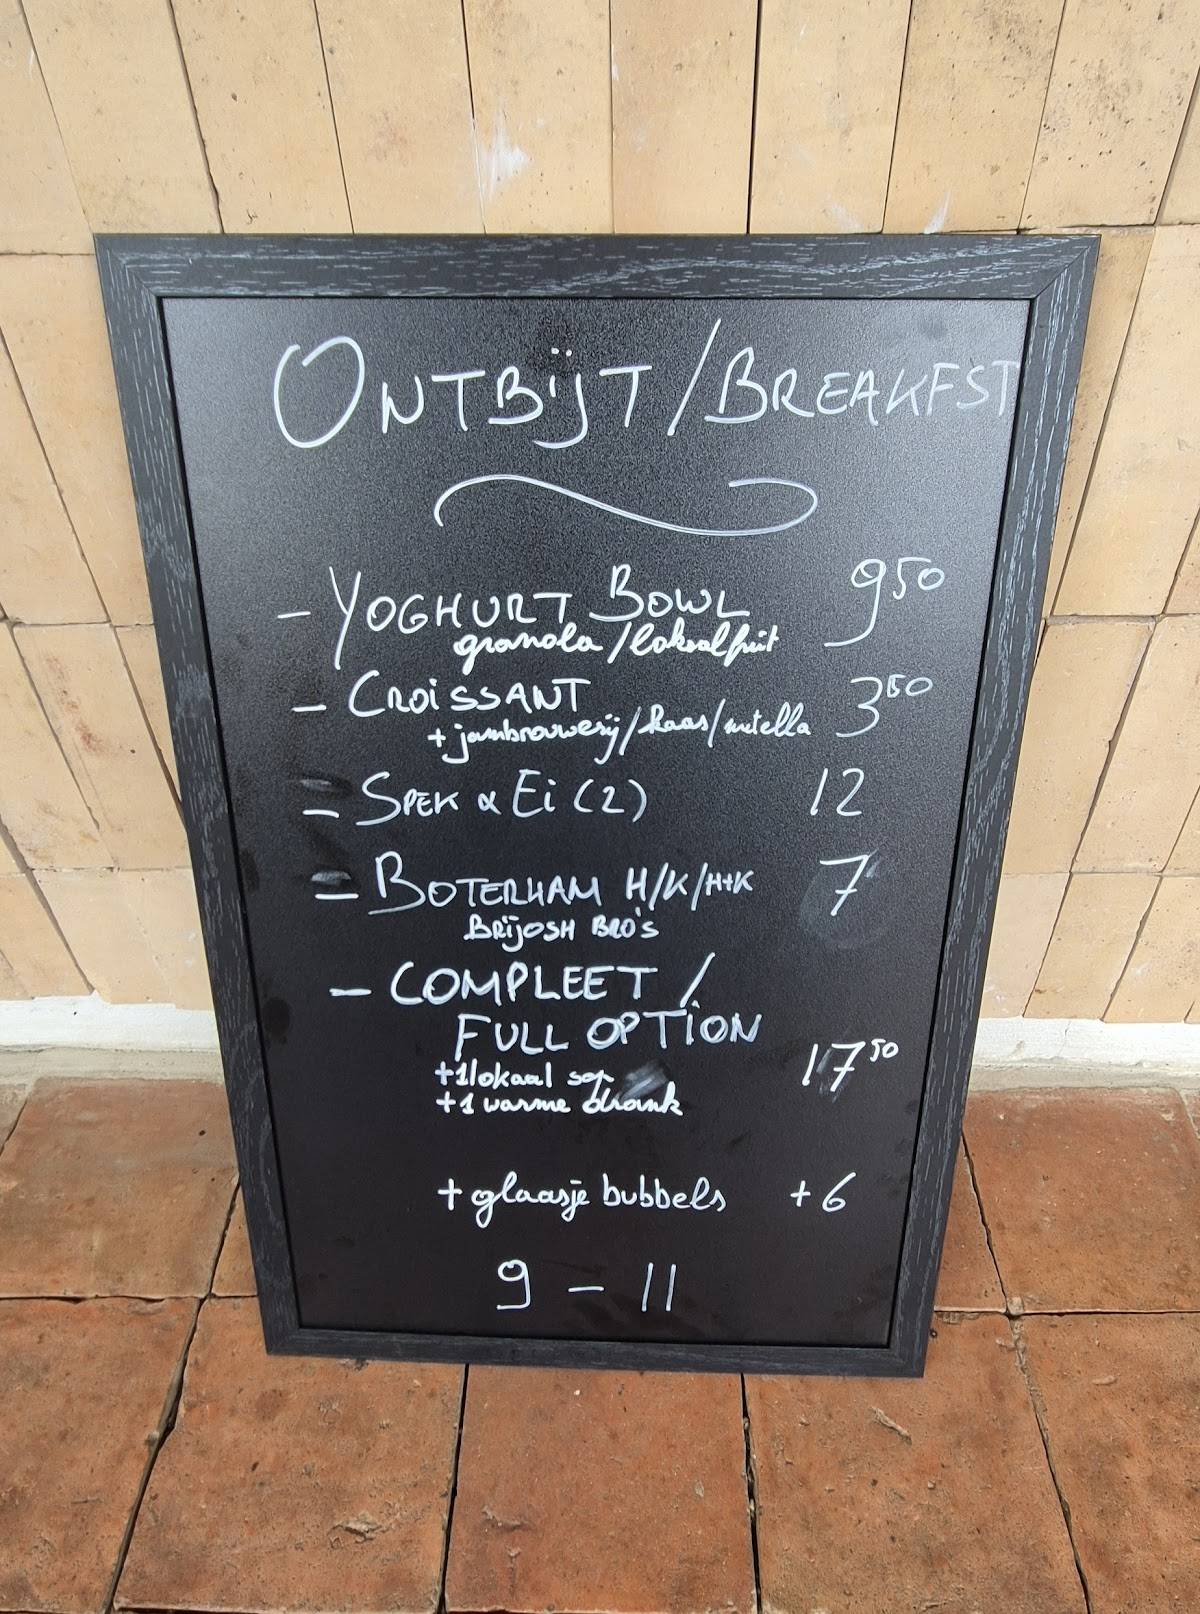 ONTBIJT/BREAKFST
- YOGHURT BOWL 9⁵⁰
granola/lokaal fruit
- CROISSANT 3⁵⁰
+ jambrouwerij/kaas/nutella
- SPEK & Ei (2) 12
- BOTERHAM H/K/H+K 7
BRIJOSH BRO'S
- COMPLEET /
FULL OPTION 17⁵⁰
+1 lokaal sap
+1 warme drank
+ glaasje bubbels +6
9 - 11